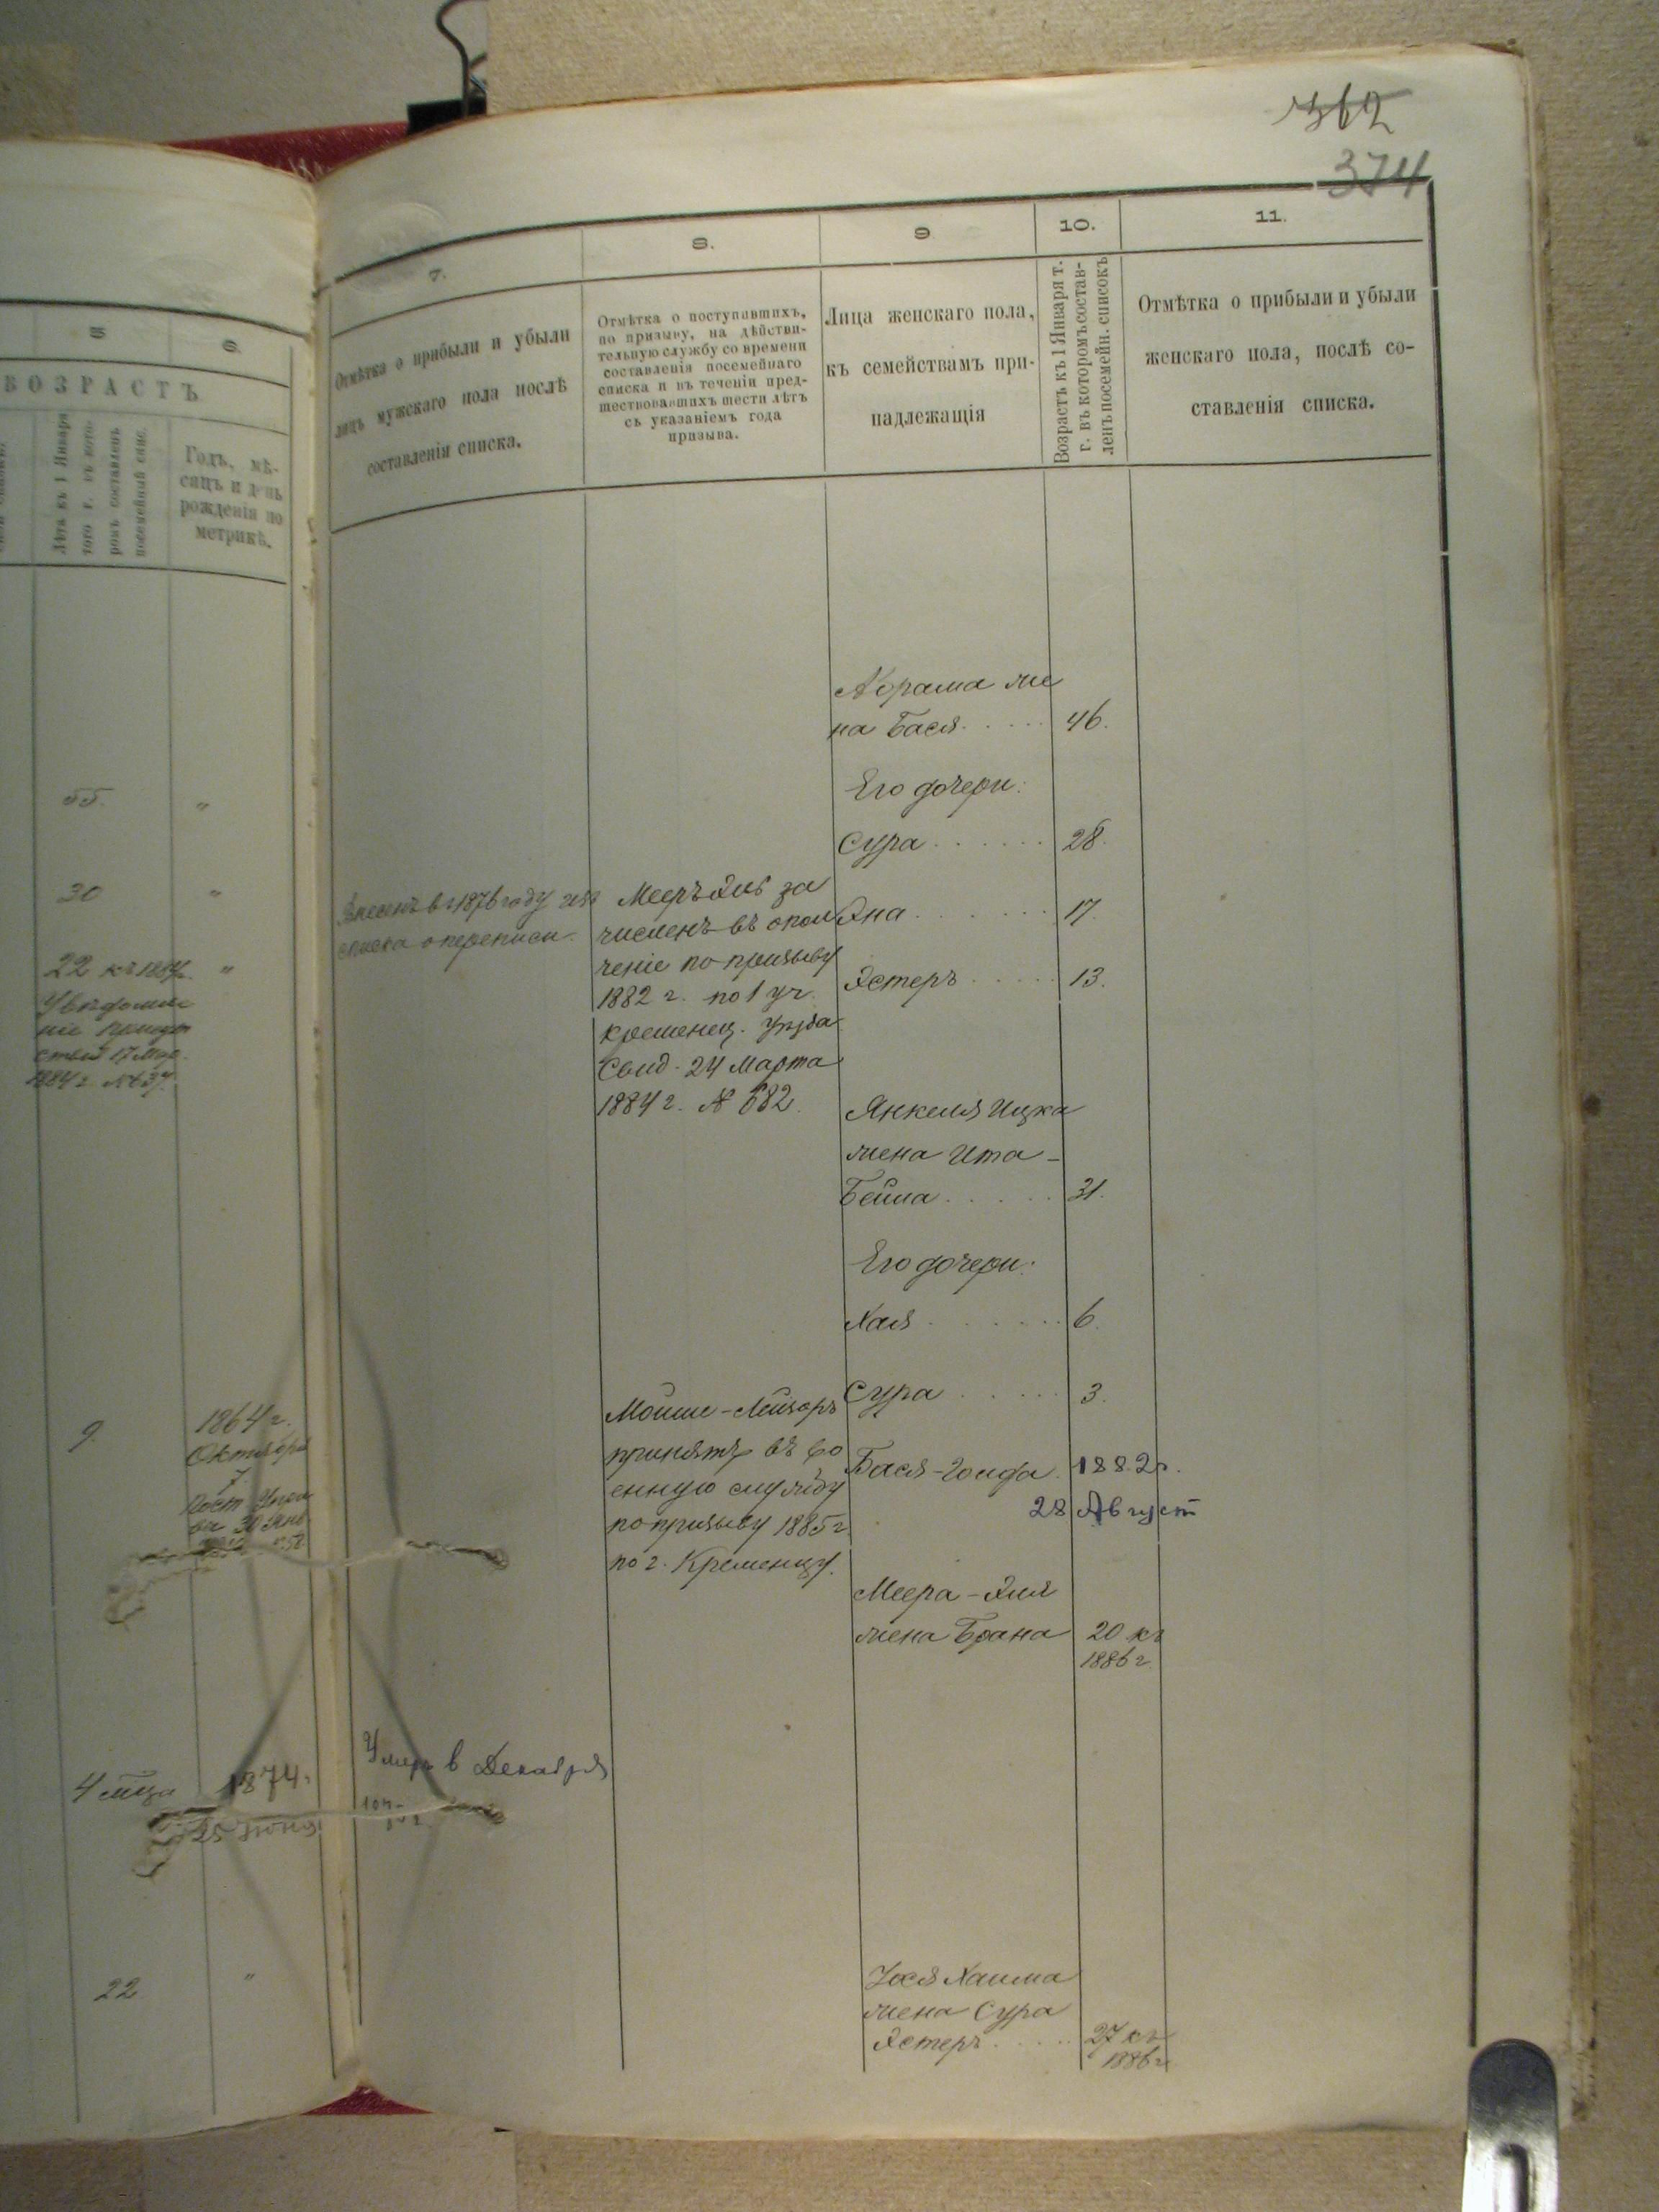 362
374
5
6
ВОЗРАСТЪ
Лѣта къ 1 Января
того г. въ кото-
ромъ составленъ
посемейный спис.
Годъ, мѣ-
сяцъ и день
рожденія по
метрикѣ.
55. "
30 "
22 къ 1884г. "
Увѣдомле
ніе
17 Мар.
1884 г. № 637.
9.
1864 г.
Октября
7.
Пост. Упра
вы 30 Янв
4 мѣца
1874.
25 Іюня
22 "
7.
8.
9
10.
11.
Отмѣтка о прибыли и убыли
лицъ мужскаго пола послѣ
составленія списка.
Отмѣтка о поступившихъ,
по призыву, на дѣйстви-
тельную службу со времени
составленія посемейнаго
списка и въ теченіи пред-
шествовавшихъ шести лѣтъ
съ указаніемъ года
призыва.
Лица женскаго пола,
къ семействамъ при-
надлежащія
Возрастъ къ 1 Января т.
г. въ которомъ состав-
ленъ посемейн. списокъ
Отмѣтка о прибыли и убыли
женскаго пола, послѣ со-
ставленія списка.
Внесенъ въ 1876 году изъ
списка о переписи.
Умеръ в Декабря
Мееръ Эль за
численъ въ опол
ченіе по призыву
1882 г. по 1 уч.
кременец. уѣзда
Свид. 24 Марта
1884 г. № 682.
Мойше-Лейзоръ
принятъ въ во
енную службу
по призыву 1885 г.
по г. Кременцу.
Абрама же
на Бася . . . . . 46.
Его дочери:
Сура . . . . . . 28.
Эна . . . . . . . 17.
Эстеръ . . . . . 13.
Янкеля Ицка
жена Ита-
Бейла . . . . . 31.
Его дочери:
Хая . . . . . . . 6.
Сура . . . . . . 3.
Бася-Голда. 1882г.
28 Август
Меера-Эля
жена Брана 20 къ
1886 г.
Іося Хаима
жена Сура
Эстеръ . . . . . 27 къ
1886 г.